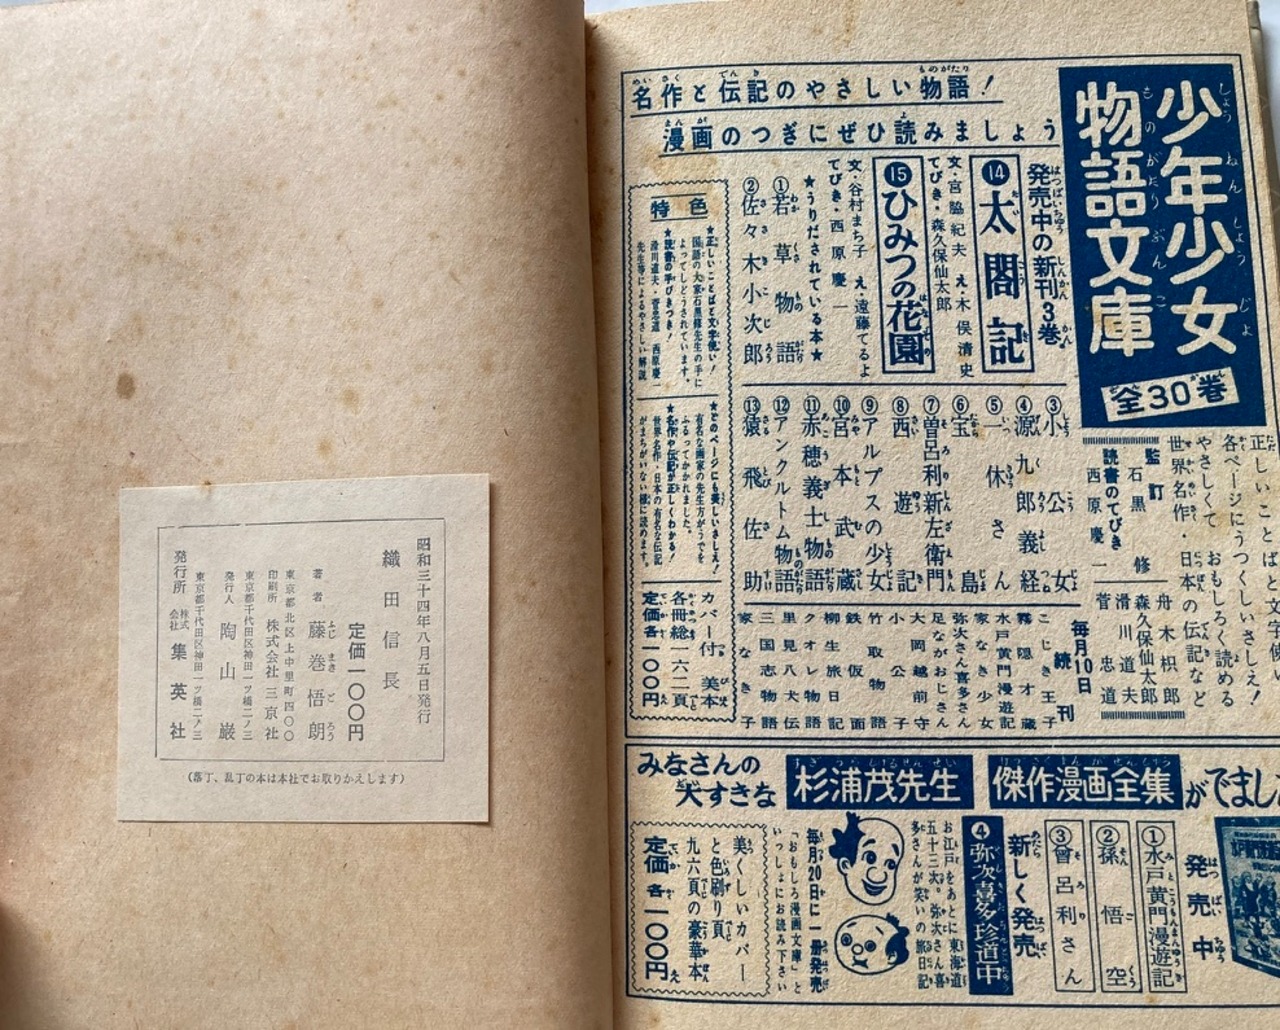 昭和三十四年八月五日発行
織田信長
定価一〇〇円
著者 藤巻悟朗
ふじ まき ご ろう
東京都北区上中里町四〇〇
印刷所 株式会社 三京社
東京都千代田区神田一ツ橋二ノ三
発行人 陶山巌
東京都千代田区神田一ツ橋二ノ三
発行所 株式会社 集英社
(落丁、乱丁の本は本社でお取りかえします)
少年少女
物語文庫
全30巻
名作と伝記のやさしい物語!
漫画のつぎにぜひ読みましょう
発売中の新刊3巻
⑭太閤記
文・宮脇紀夫 え・木俣清史
てびき・森久保仙太郎
⑮ひみつの花園
文・谷村まち子 え・遠藤てるよ
てびき・西原慶一
★うりだされている本★
①若草物語
②佐々木小次郎
③小公女
④源九郎義経
⑤一休さん
⑥宝島
⑦曽呂利新左衛門
⑧西遊記
⑨アルプスの少女
⑩宮本武蔵
⑪赤穂義士物語
⑫アンクルトム物語
⑬猿飛佐助
正しいことばと文字使い
各ページにうつくしいさしえ!
やさしくて おもしろく読める
世界名作・日本の伝記など
監訂
石黒修
読書のてびき
西原慶一
舟木枳郎
森久保仙太郎
滑川道夫
菅忠道
毎月10日
続刊
こじき王子
霧隠才蔵
水戸黄門漫遊記
家なき少女
弥次さん喜多さん
足ながおじさん
大岡越前守
小公子
竹取物語
鉄仮面
柳生旅日記
クオレ物語
里見八犬伝
三国志物語
家なき子
特色
★正しいことばと文字使い!
国語の大家石黒修先生の手に
よってしどうされています。
★読書の手びきつき!
滑川道夫・菅忠道 西原慶一
先生等によるやさしい解説
★どのページにも美しいさしえ!
有名な画家の先生方がうでを
ふるってかかれました。
★名作や伝記が正しくわかる!
世界名作・日本の有名な伝記
がまちがいない様に読めます。
カバー付 美本
各冊総一六二頁
定価各一〇〇円
みなさんの
大すきな
杉浦茂先生
傑作漫画全集
がでました
発売中
①水戸黄門漫遊記
②孫悟空
③曾呂利さん
新しく発売
④弥次喜多珍道中
お江戸をあとに東海道
五十三次。弥次さん喜
多さんが笑いの旅日記
毎月20日に一冊発売
「おもしろ漫画文庫」と
いっしょにお読み下さい
美くしいカバー
と色刷り頁
九六頁の豪華本
定価各一〇〇円